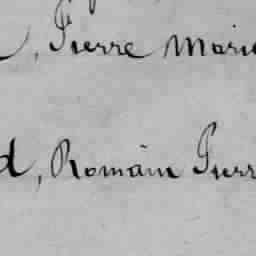 , Pierre Marie
d, Romain Pierr